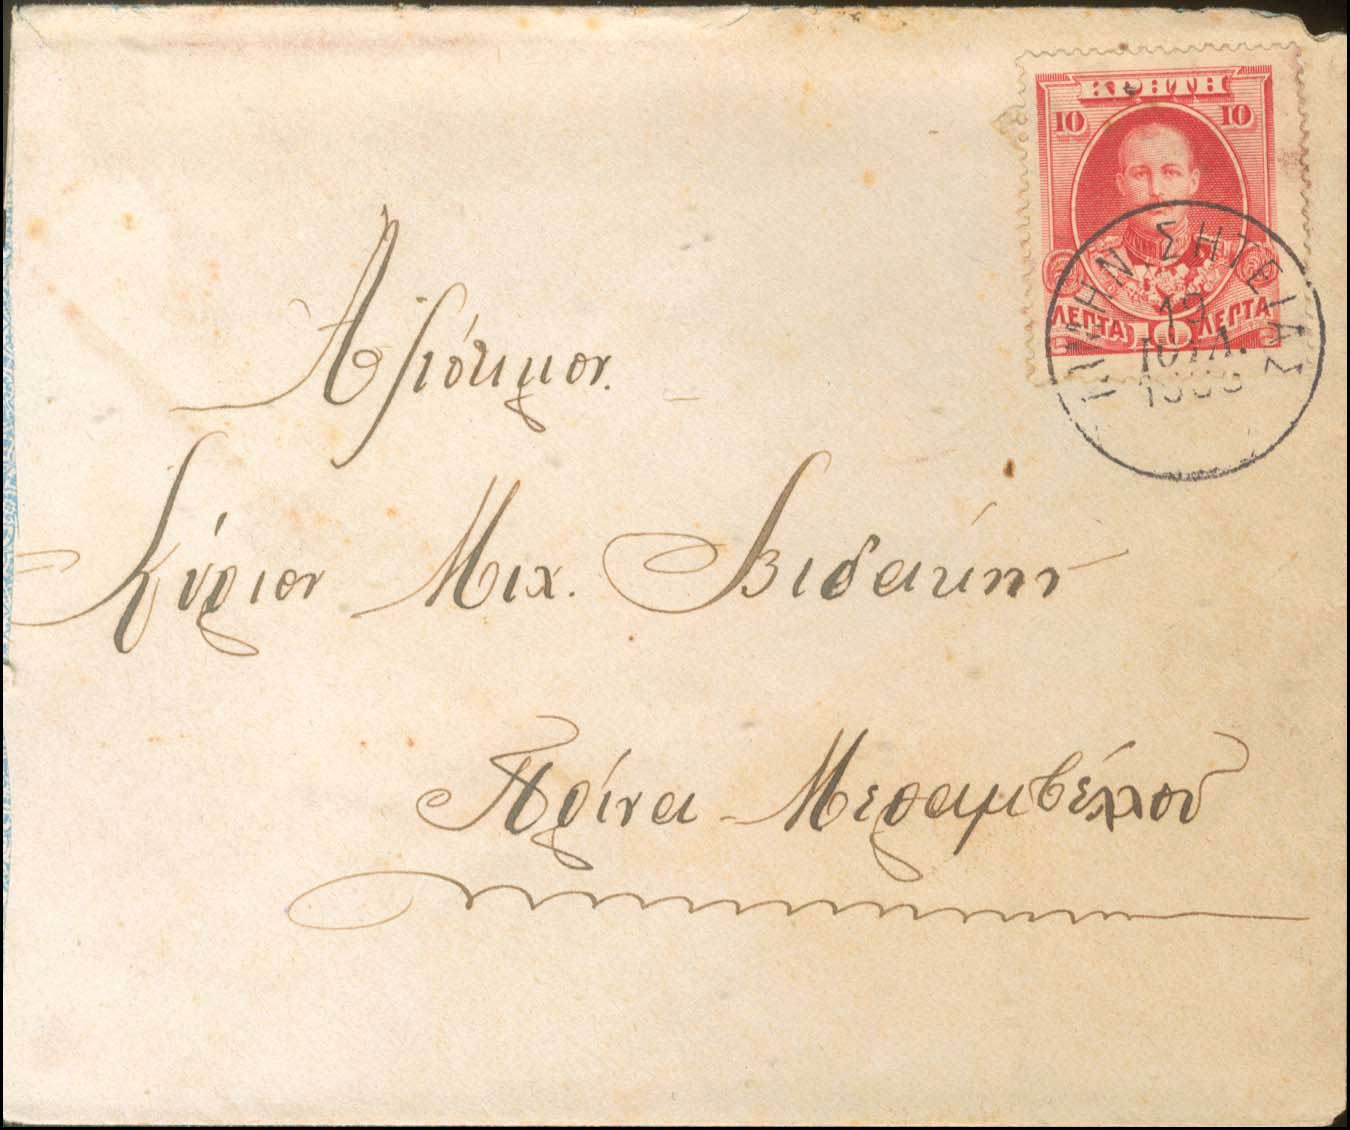 ΚΡΗΤΗ
10 10
ΛΕΠΤΑ 10 ΛΕΠΤΑ
ΣΗΤΕΙΑΣ
19
ΙΟΥΛ.
Αξιότιμον.
Κύριον Μιχ. Βιδάκην
Πρίνα Μεραμβέλλου